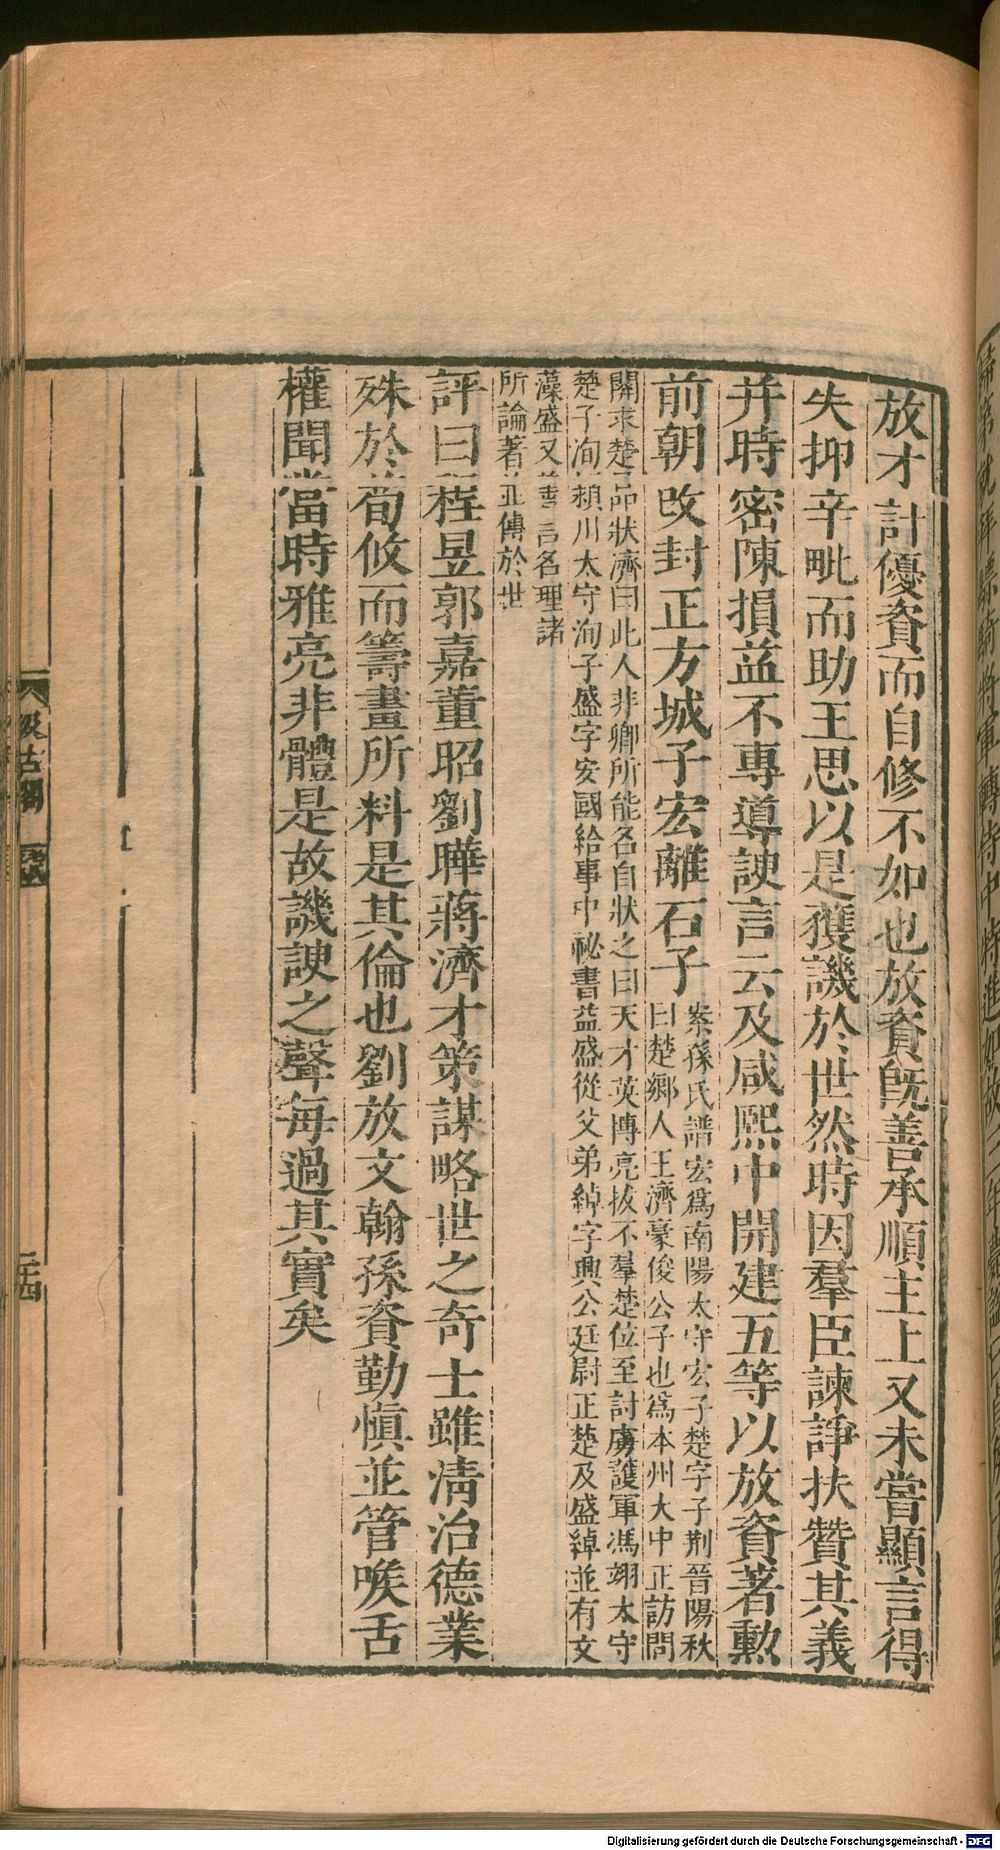 放才計優資而自修不如也放資旣善承順主上又未嘗顯言得
失抑辛毗而助王思以是獲譏於世然時因羣臣諫諍扶贊其義
并時密陳損益不專導諛言云及咸熙中開建五等以放資著勳
前朝改封正方城子宏離石子
案孫氏譜宏爲南陽太守宏子楚字子荆晉陽秋
曰楚鄉人王濟豪俊公子也爲本州大中正訪問
關求楚品狀濟曰此人非卿所能名自狀之曰天才英博亮拔不羣楚位至討虜護軍馮翊太守
楚子洵潁川太守洵子盛字安國給事中祕書監盛從父弟綽字興公廷尉正楚及盛綽並有文
藻盛又善言名理諸
所論著並傳於世
評曰程昱郭嘉董昭劉曄蔣濟才策謀略世之奇士雖清治德業
殊於荀攸而籌畫所料是其倫也劉放文翰孫資勤愼並管喉舌
權聞當時雅亮非體是故譏諛之聲每過其實矣
汲古閣
二十四
Digitalisierung gefördert durch die Deutsche Forschungsgemeinschaft - DFG